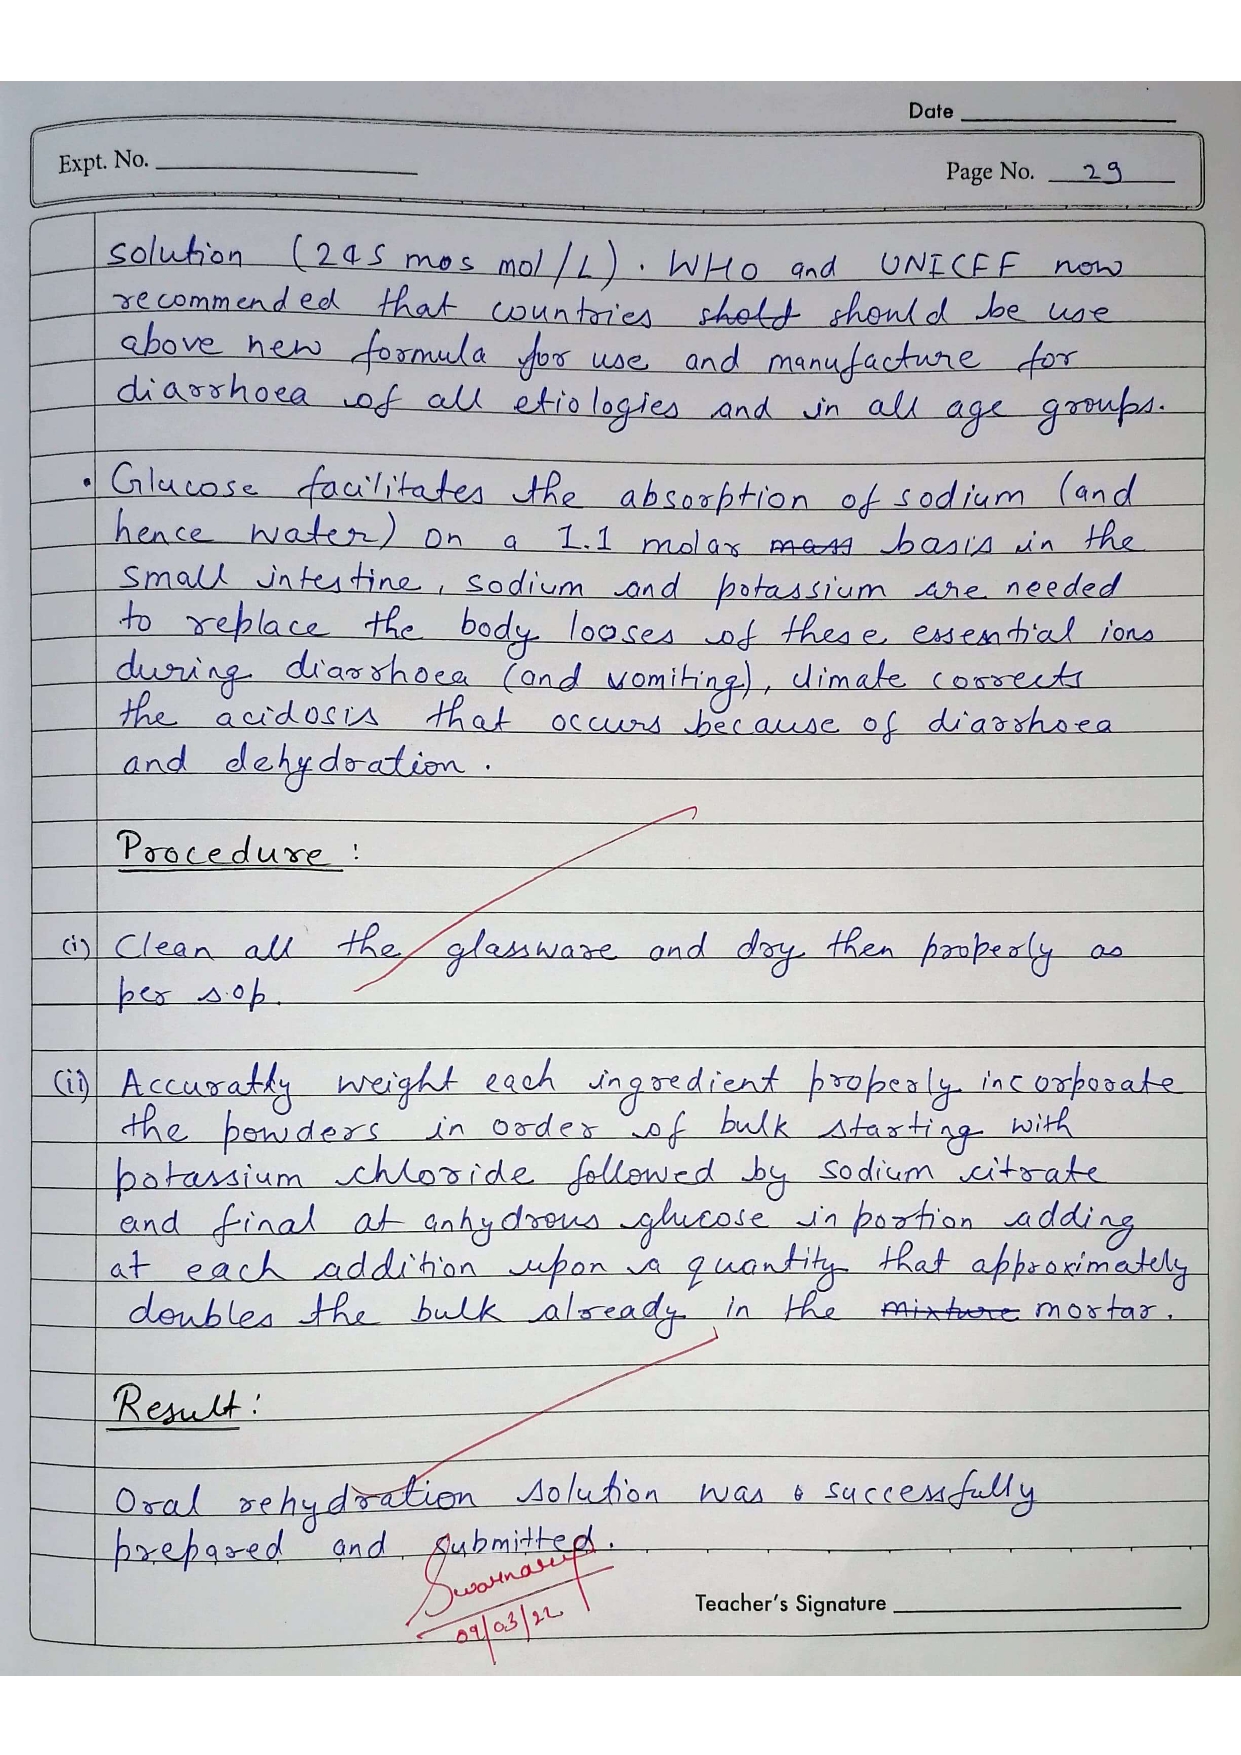 Date
Expt. No.
Page No. 29
solution (245 mos mol/L). WHO and UNICEF now
recommended that countries shold should be use
above new formula for use and manufacture for
diarrhoea of all etiologies and in all age groups.
• Glucose facilitates the absorption of sodium (and
hence water) on a 1.1 molar mass basis in the
small intestine, sodium and potassium are needed
to replace the body looses of these essential ions
during diarrhoea (and vomiting), climate corrects
the acidosis that occurs because of diarrhoea
and dehydration.
Procedure :
(i) Clean all the glassware and dry then properly as
per s.o.p.
(ii) Accuratly weight each ingredient properly incorporate
the powders in order of bulk starting with
potassium chloride followed by sodium citrate
and final at anhydrous glucose in portion adding
at each addition upon a quantity that approximately
doubles the bulk already in the mixture mortar.
Result :
Oral rehydration solution was successfully
prepared and submitted.
Teacher's Signature
09/03/22